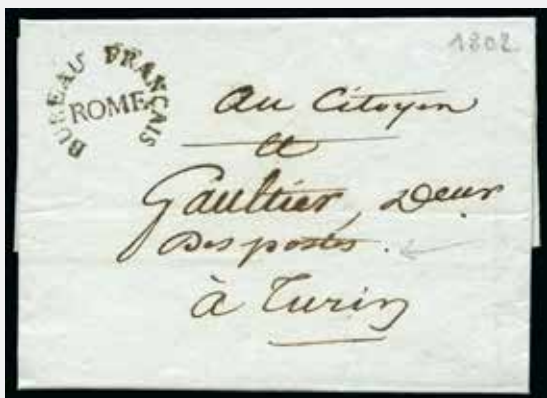 1802
BUREAU FRANÇAIS
ROME
Au Citoyen
Gaultier, Deur
Des postes.
à Turin